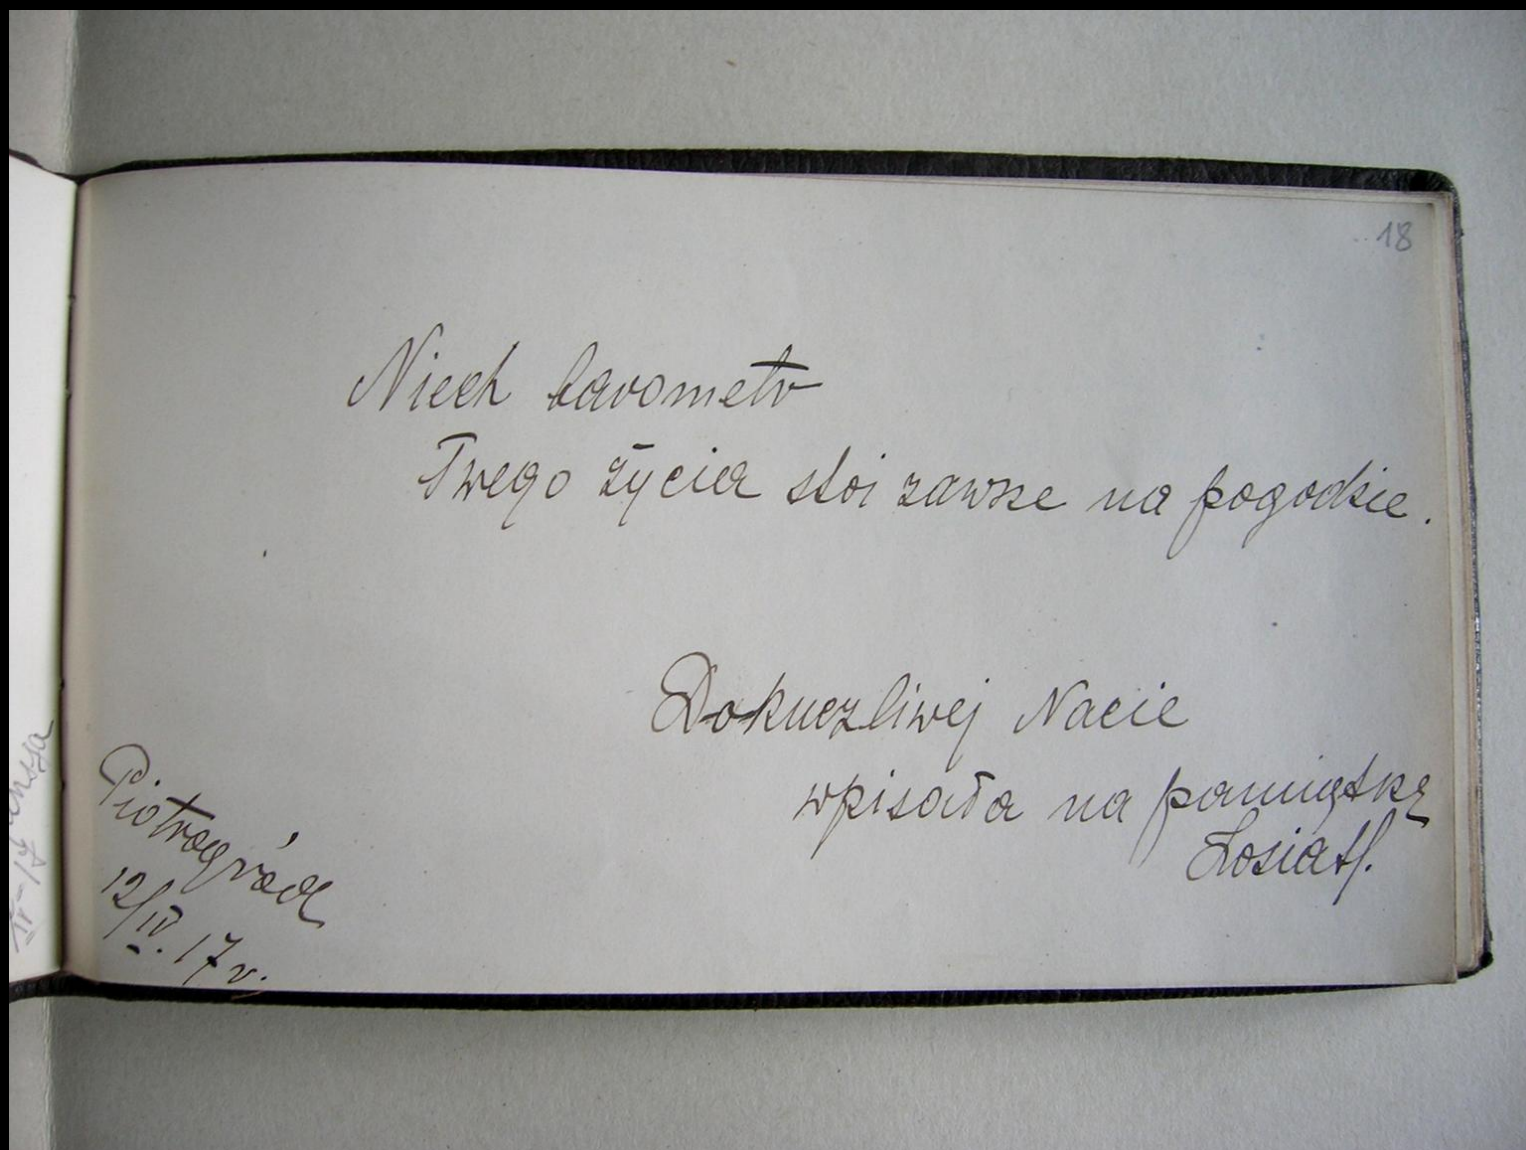 18
Niech barometr
Twego życia stoi zawsze na pogodzie.
Dokuczliwej Nacie
wpisała na pamiątkę
Piotrogród
12/IV. 17 r.